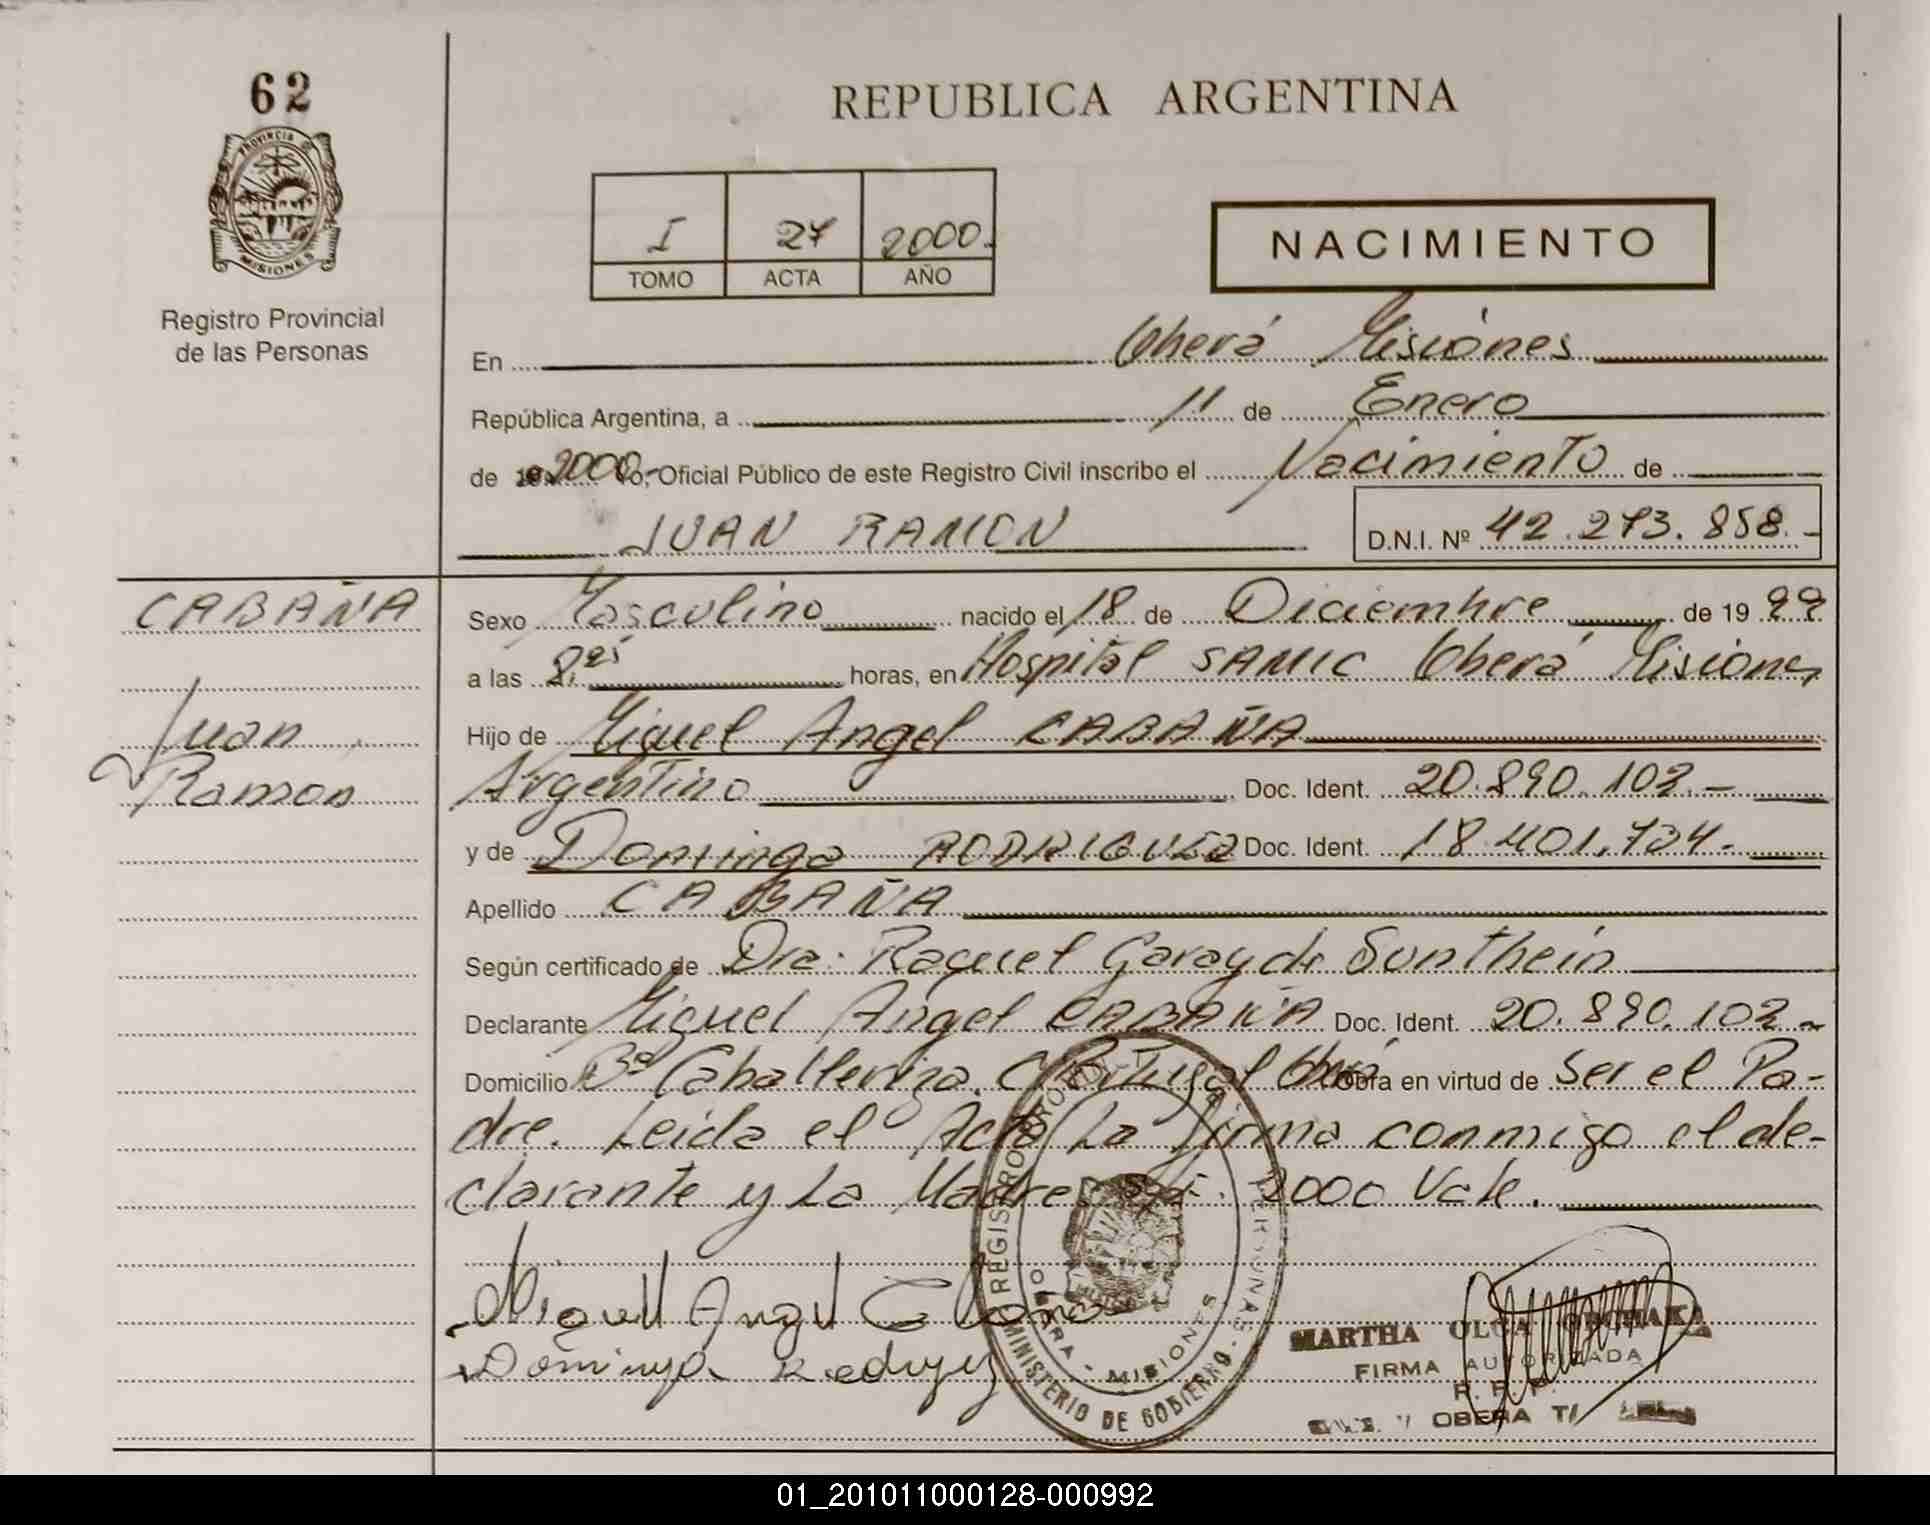 62
PROVINCIA DE
MISIONES
Registro Provincial
de las Personas
REPUBLICA ARGENTINA
I 27 2000.
TOMO ACTA AÑO
NACIMIENTO
En Oberá Misiónes
República Argentina, a 11 de Enero
de 2000.- Yo, Oficial Público de este Registro Civil inscribo el Nacimiento de
JUAN RAMON D.N.I. Nº 42.273.858.-
CABAÑA
Juan
Ramon
Sexo Masculino nacido el 18 de Diciembre de 1999
a las 8. horas, en Hospital SAMIC Oberá Misiones
Hijo de Miguel Angel CABAÑA
Argentino Doc. Ident. 20.890.102.-
y de Dominga RODRIGUEZ Doc. Ident. 18.401.734.-
Apellido CABAÑA
Según certificado de Dra. Raquel Garay de Sunthein
Declarante Miguel Angel CABAÑA Doc. Ident. 20.890.102-
Domicilio Bº Caballeriza. C/Portugal Oberá obra en virtud de Ser el Pa-
dre. Leida el Acta La firma conmigo el de-
clarante y La Madre. 2000 Vale.
Miguel Angel Cabana
Dominga Rodriguez
REGISTRO PERSONAS
OBERA - MISIONES
MINISTERIO DE GOBIERNO
MARTHA OLGA
FIRMA AUTORIZADA
R. P. P.
OBERA
01_201011000128-000992